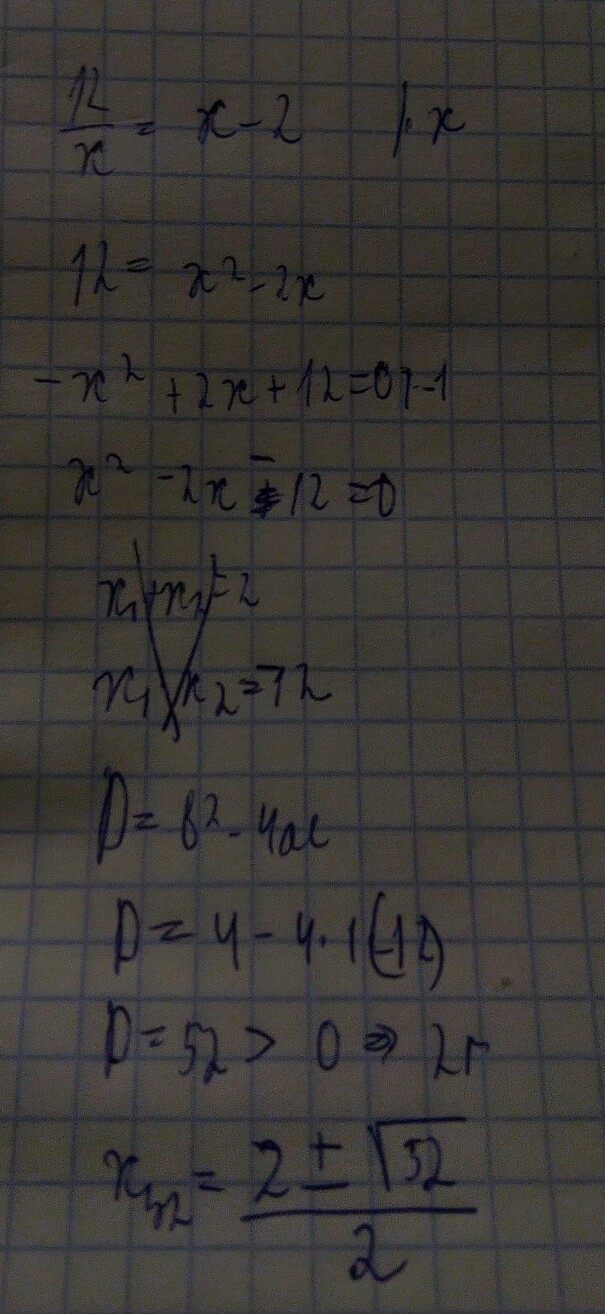 12/x = x - 2 |· x
12 = x² - 2x
-x² + 2x + 12 = 0 |·-1
x² - 2x - 12 = 0
x₁ + x₂ = 2
x₁ x₂ = -12
D = b² - 4ac
D = 4 - 4·1(-12)
D = 52 > 0 ⇒ 2r
x₁,₂ = (2 ± √52)/2